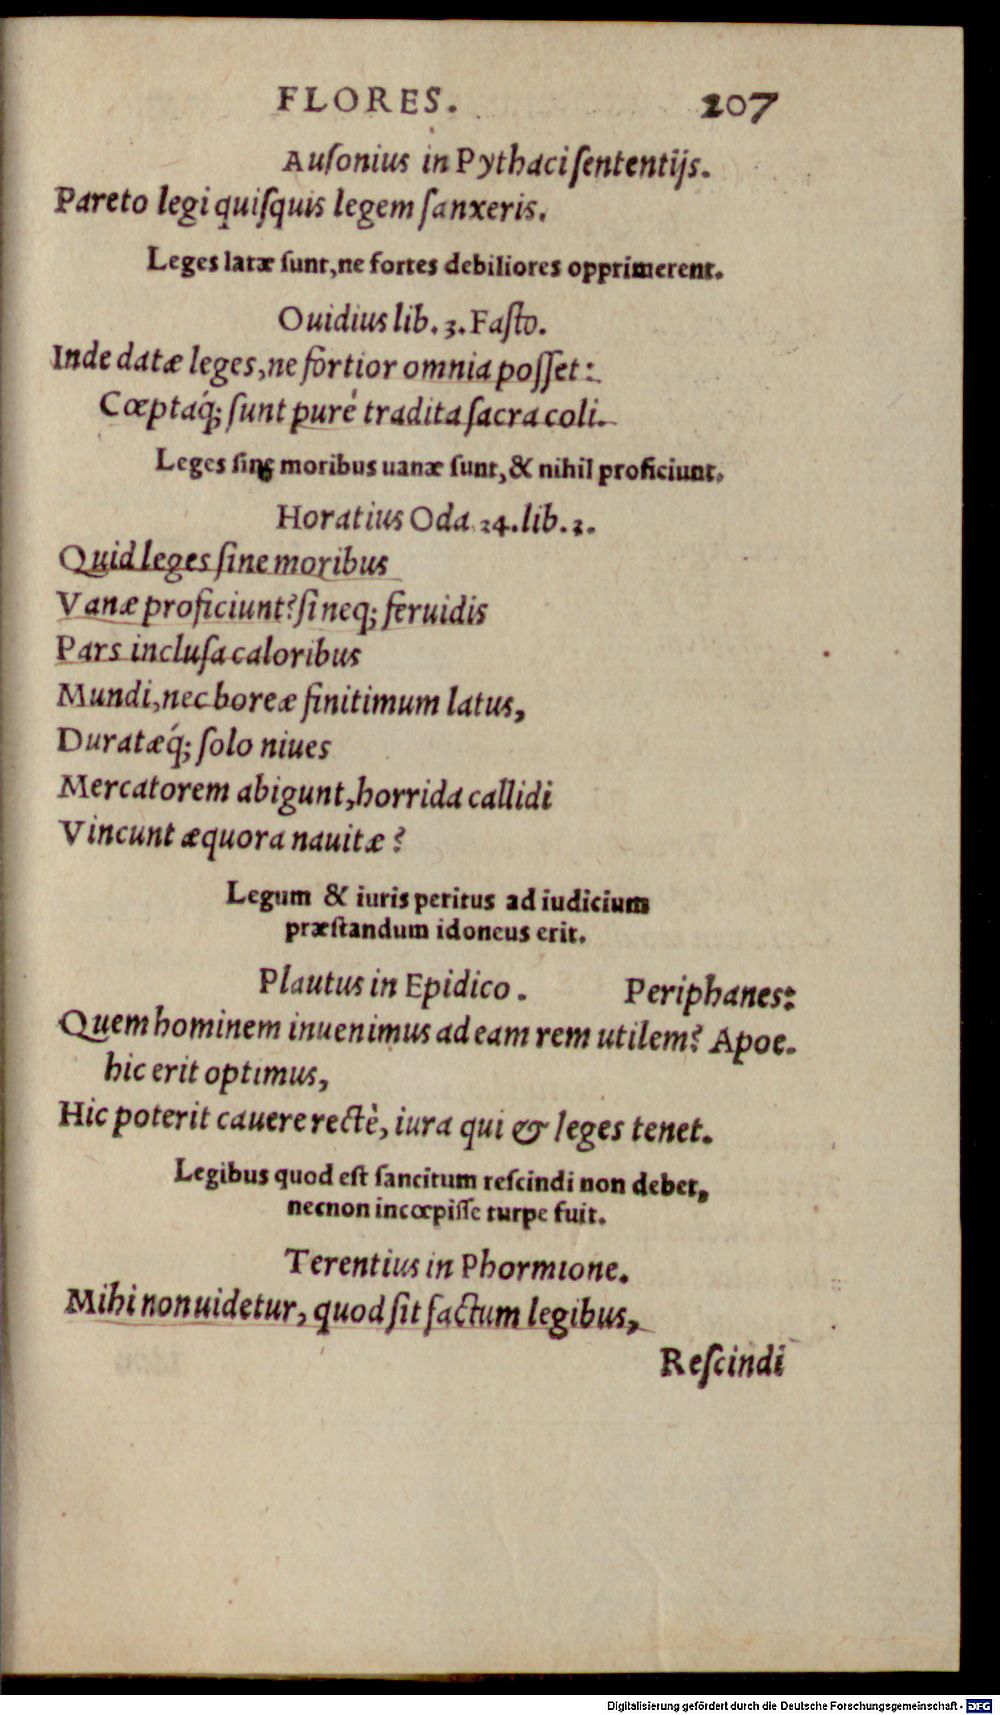 FLORES. 207
Auſonius in Pythaci ſententijs.
Pareto legi quiſquis legem ſanxeris.
Leges latæ ſunt, ne fortes debiliores opprimerent.
Ouidius lib. 3. Faſto.
Inde datæ leges, ne fortior omnia poſſet:
Cœptaq́; ſunt purè tradita ſacra coli.
Leges ſine moribus uanæ ſunt, & nihil proficiunt.
Horatius Oda 24. lib. 3.
Quid leges ſine moribus
Vanæ proficiunt? ſi neq; feruidis
Pars incluſa caloribus
Mundi, nec boreæ finitimum latus,
Duratæq́; ſolo niues
Mercatorem abigunt, horrida callidi
Vincunt æquora nauitæ?
Legum & iuris peritus ad iudicium
præſtandum idoneus erit.
Plautus in Epidico. Periphanes:
Quem hominem inuenimus ad eam rem utilem? Apoe.
hic erit optimus,
Hic poterit cauere rectè, iura qui & leges tenet.
Legibus quod eſt ſancitum reſcindi non debet,
necnon incœpiſſe turpe fuit.
Terentius in Phormione.
Mihi non uidetur, quod ſit factum legibus,
Reſcindi
Digitalisierung gefördert durch die Deutsche Forschungsgemeinschaft - DFG